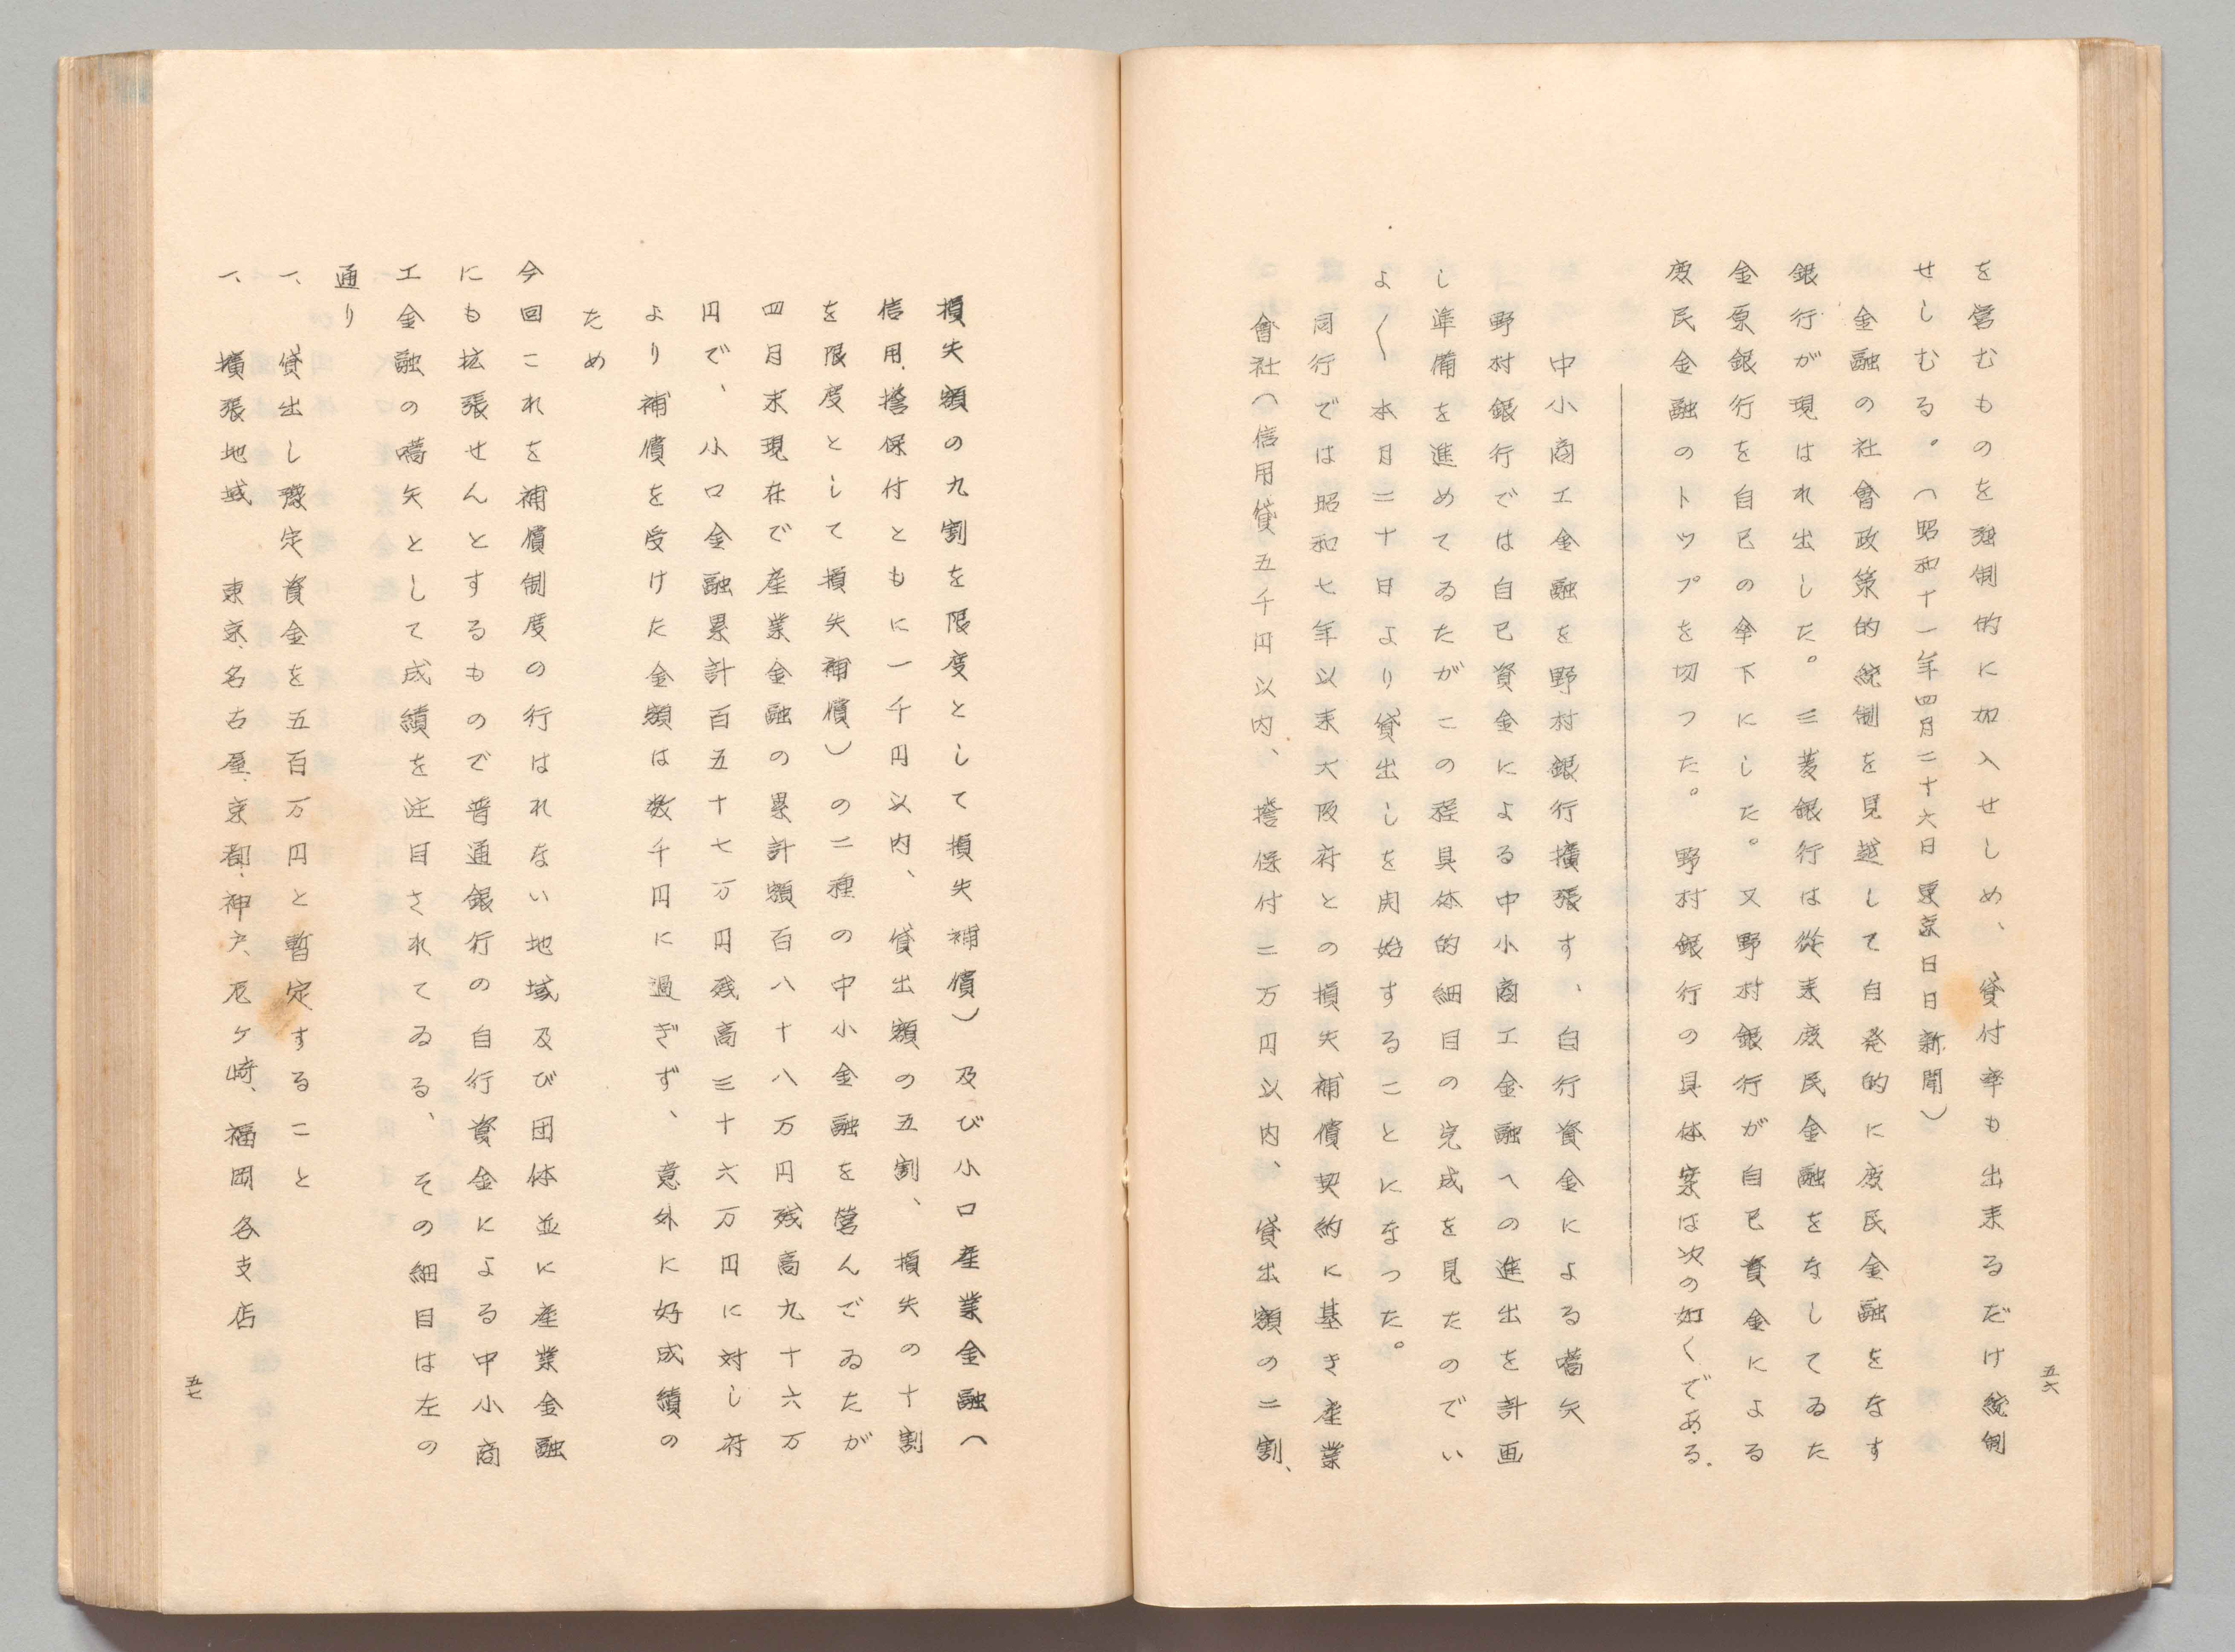 を営むものを強制的に加入せしめ、貸付率も出来るだけ統制
せしむる。（昭和十一年四月二十六日 東京日日新聞）
金融の社會政策的統制を見越して自発的に庶民金融をなす
銀行が現はれ出した。三菱銀行は從来庶民金融をなしてゐた
金原銀行を自己の傘下にした。又野村銀行が自己資金による
庶民金融のトツプを切つた。野村銀行の具体案は次の如くである.
中小商工金融を野村銀行擴張す、自行資金による嚆矢
野村銀行では自己資金による中小商工金融への進出を計画
し準備を進めてゐたがこの程具体的細目の完成を見たのでい
よ〱本月二十日より貸出しを開始することになつた。
同行では昭和七年以来大阪府との損失補償契約に基き産業
會社（信用貸五千円以内、擔保付二万円以内、貸出額の二割、
五六
損失額の九割を限度として損失補償）及び小口産業金融へ
信用、擔保付ともに一千円以内、貸出額の五割、損失の十割
を限度として損失補償）の二種の中小金融を営んでゐたが
四月末現在で産業金融の累計額百八十八万円残高九十六万
円で、小口金融累計百五十七万円残高三十六万円に対し府
より補償を受けた金額は数千円に過ぎず、意外に好成績の
ため
今回これを補償制度の行はれない地域及び団体並に産業金融
にも拡張せんとするもので普通銀行の自行資金による中小商
工金融の嚆矢として成績を注目されてゐる、その細目は左の
通り
一、貸出し豫定資金を五百万円と暫定すること
一、擴張地域 東京、名古屋、京都、神戸、尼ケ崎、福岡各支店
五七